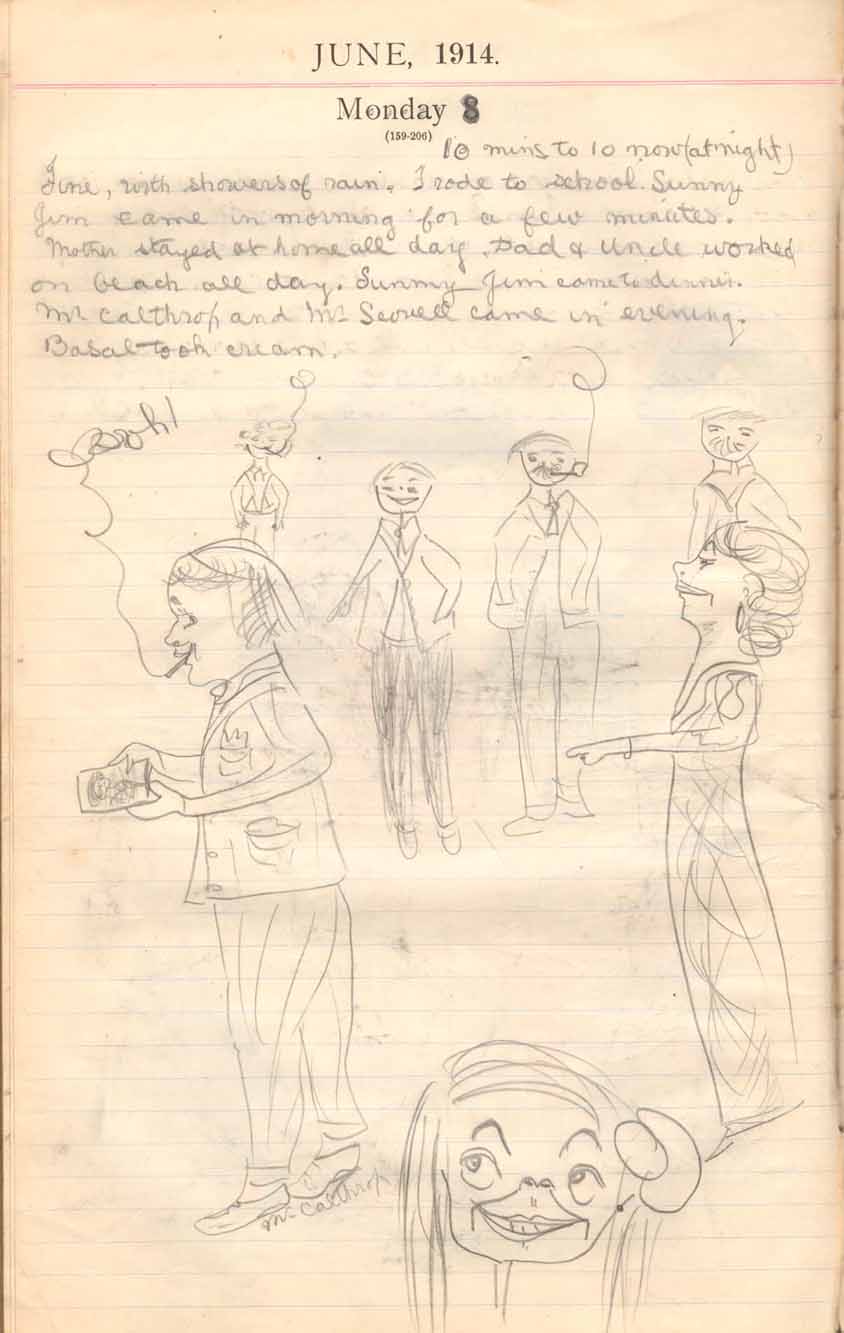 JUNE, 1914.
Monday 8
(159-206)
10 mins to 10 now (at night)
Fine, with showers of rain. I rode to school. Sunny
Jim came in morning for a few minutes.
Mother stayed at home all day. Dad & Uncle worked
on beach all day. Sunny Jim came to dinner.
Mr Calthrop and Mr Scovell came in evening.
Basal took cream.
Booh!
Mr Calthrop